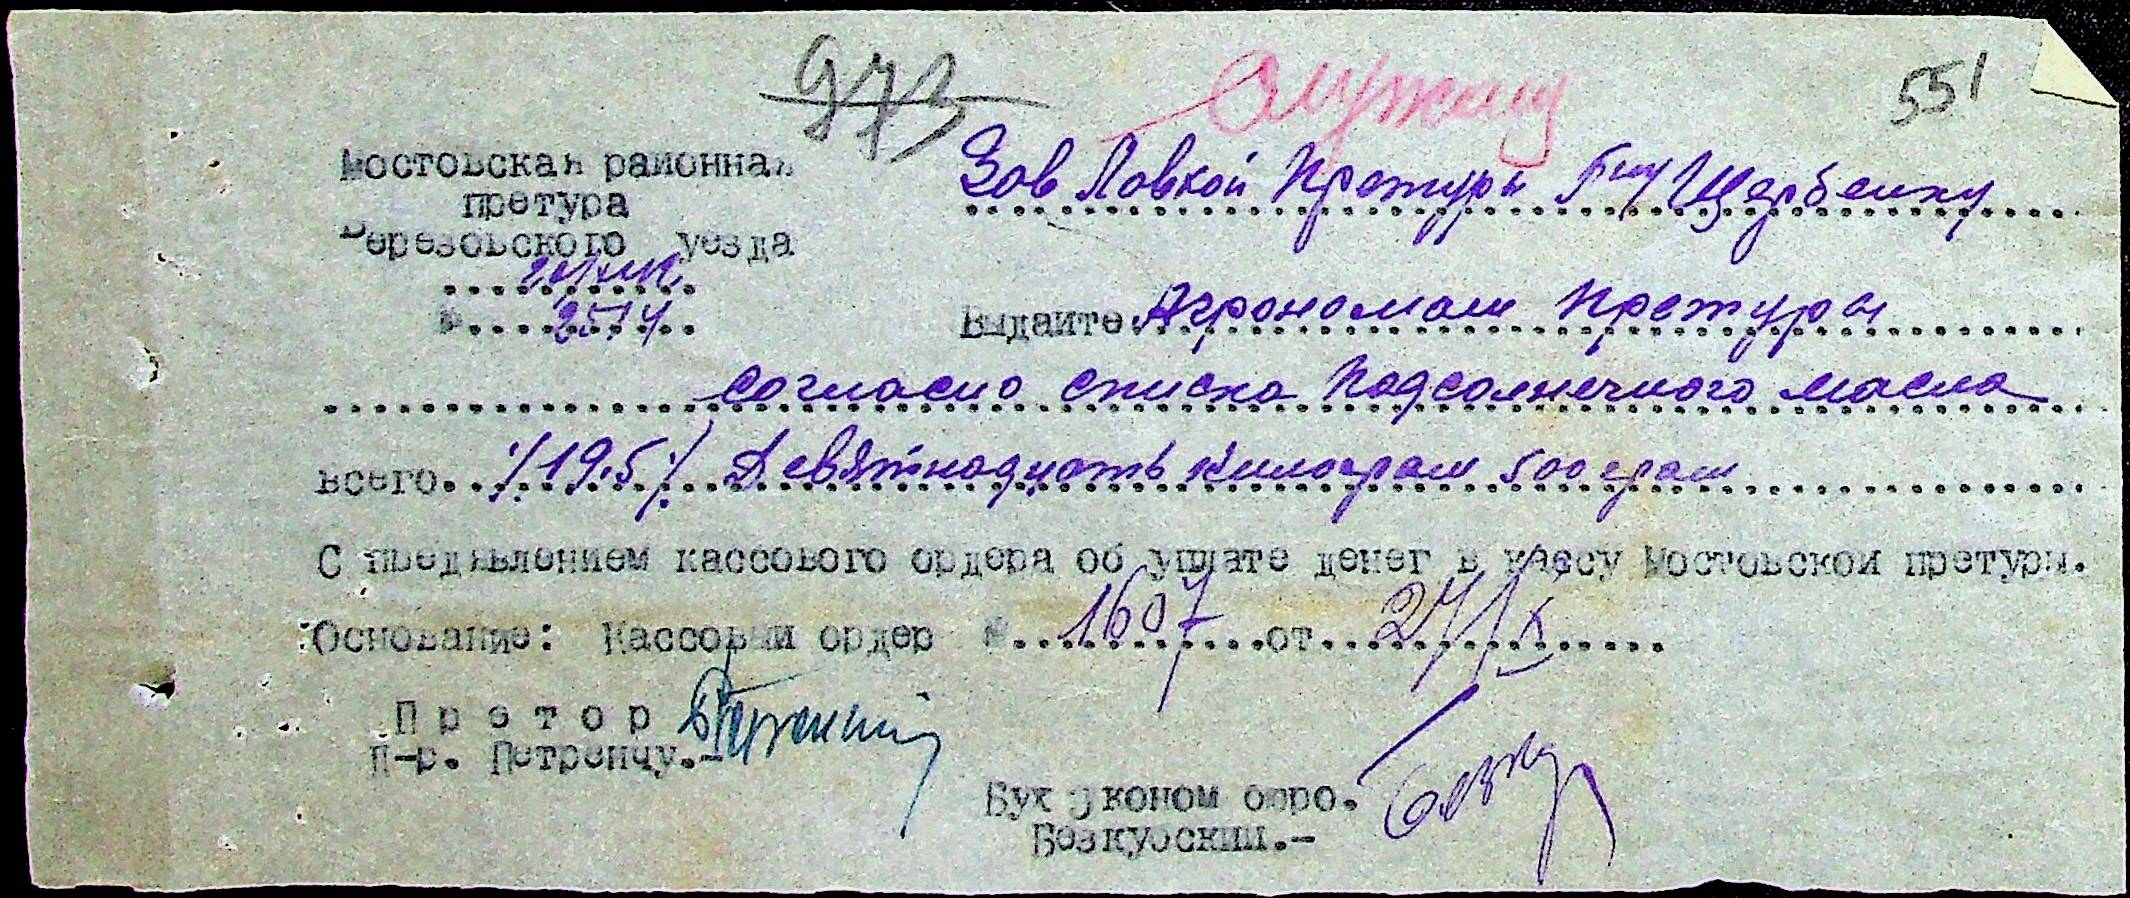 973
551
Мостовская районная
претура
Березовского уезда
№ 2574
Зав Лавкой Претуры Г-ну Щербенку
Выдайте Агрономам Претуры
согласно списка Подсолнечного масла
Всего /19.5/ Девятнадцать килограм 500 грам
С предявлением кассового ордера об уплате денег в кассу Мостовской претуры.
Основание: Кассовый ордер № 1607 от 24/X
Претор
П-р. Петренчу.-
Бух эконом бюро.
Безкубский.-